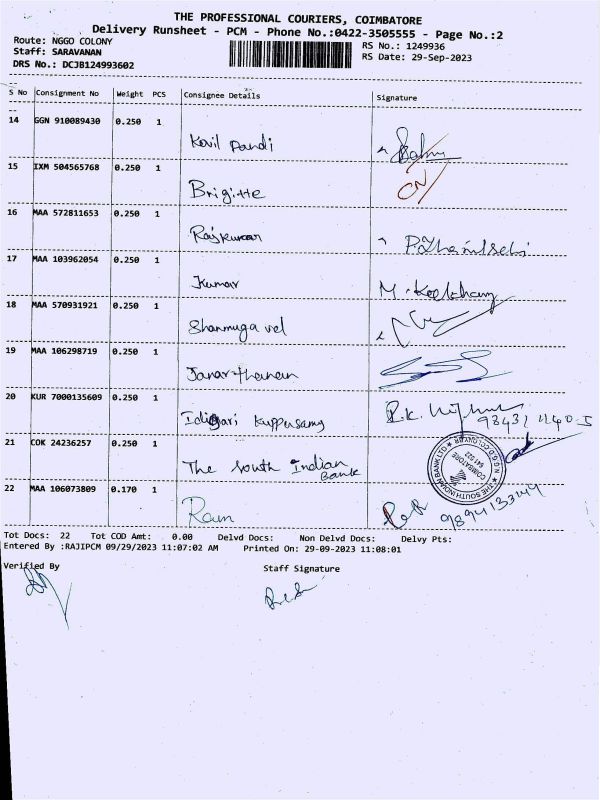 THE PROFESSIONAL COURIERS, COIMBATORE
Delivery Runsheet - PCM - Phone No.:0422-3505555 - Page No.:2
Route: NGGO COLONY
RS No.: 1249936
Staff: SARAVANAN
RS Date: 29-Sep-2023
DRS No.: DCJB124993602
S No Consignment No Weight PCS Consignee Details Signature
14 GGN 910089430 0.250 1
Kovil Pandi
15 IXM 504565768 0.250 1
Brigitte ON
16 MAA 572811653 0.250 1
Rajkumar
17 MAA 103962054 0.250 1
Kumar
18 MAA 570931921 0.250 1
Shanmuga vel
19 MAA 106298719 0.250 1
Janarthanan
20 KUR 7000135609 0.250 1
Kuppusamy
21 COK 24236257 0.250 1
The South Indian
Bank
THE SOUTH INDIAN BANK LTD
COIMBATORE
641 022
22 MAA 106073809 0.170 1
Ram
Tot Docs: 22 Tot COD Amt: 0.00 Delvd Docs: Non Delvd Docs: Delvy Pts:
Entered By :RAJIPCM 09/29/2023 11:07:02 AM Printed On: 29-09-2023 11:08:01
Verified By Staff Signature